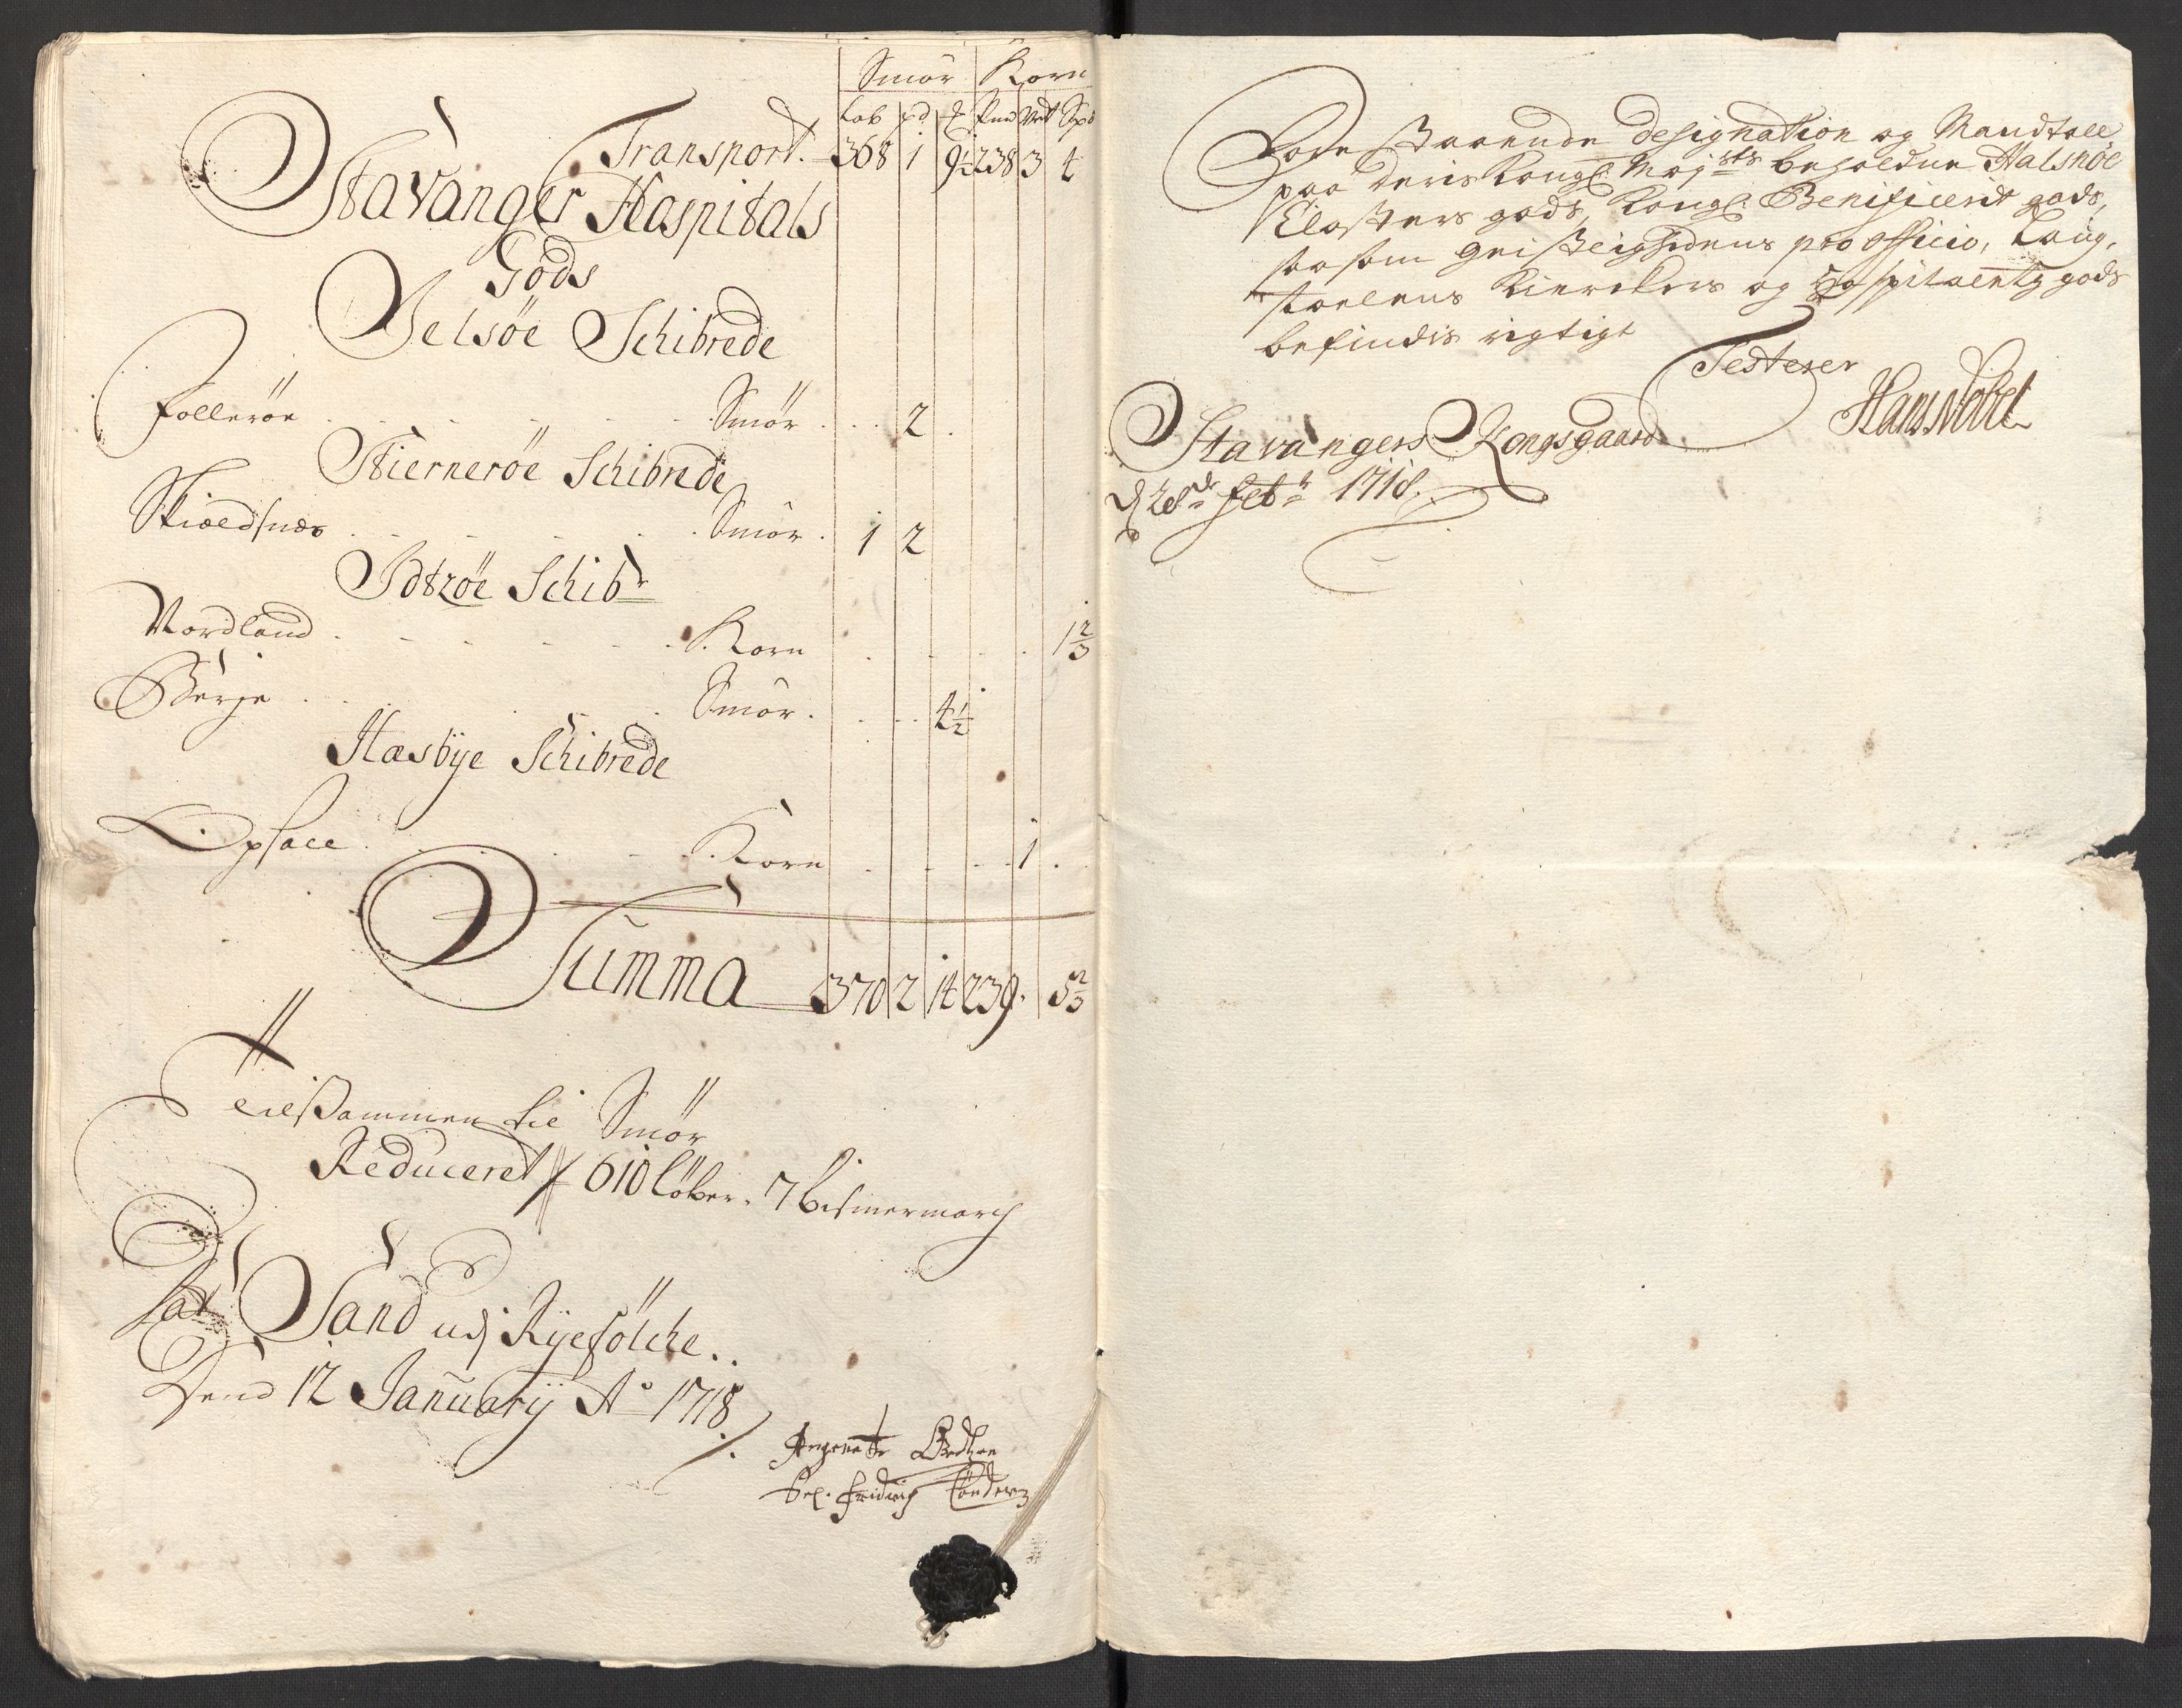 Smör Korn
Løb pd ℔ Pund Wet Spd
Transport. 368 1 9½ 238 3 4
Stavanger Haspitals
Gods
Jelsöe Schibrede
Follerøe . . . . . . Smör . . . 2 .
Stiernerøe Schibrede
Skioldsnæs . . . . . . Smör . 1 2
Idtzöe Schibr
Nordland . . . . . . Korn . . . . 1⅔
Børje . . . . . Smör . . . . 4½
Hæsbÿe Schibrede
Opsace . . . . . . Korn . . . . 1 .
Summa 370 2 14 239. 5⅔
Tilsammen til Smör
Reduceret 610 löber. 7 bismermarch
Sand udj Rÿefölche.
Dend 12 Januarÿ Ao 1718
Sel. Fridrich
Forestaaende Designation og Mandtall
paa deris Kongl: Maj:sts beholdne Halsnöe
Closters gods, Kongl: Benificerit gods,
saasom geistlighedens pro officio, Laug,
stoelens Kierckers og Hospitalentz gods
befindis rigtigt
Testerer
Hans Nobel
Stavangers Kongsgaard
d 28de Febr 1718.